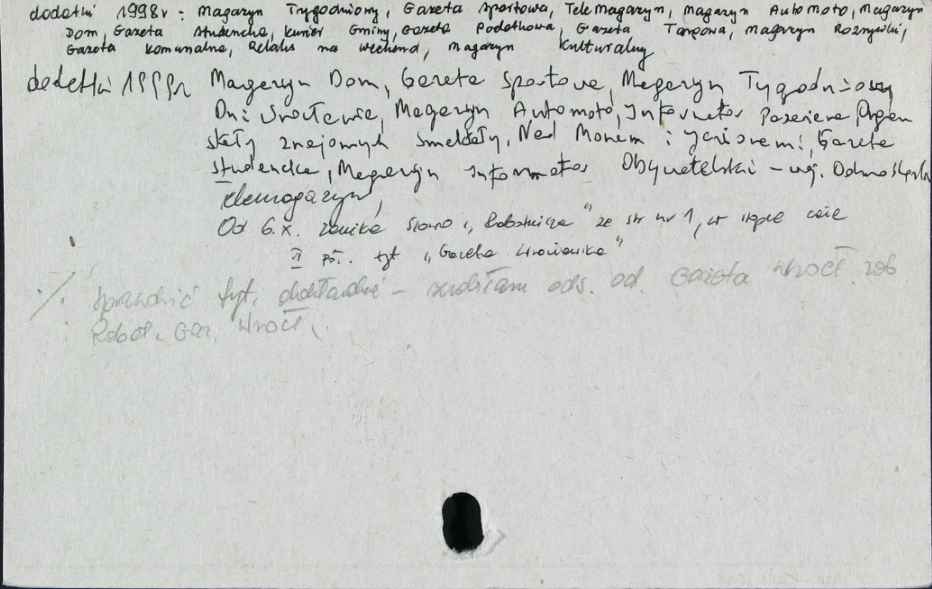 dodatki 1998r: Magazyn Tygodniowy, Gazeta Sportowa, Tele Magazyn, Magazyn Automoto, Magazyn
Dom, Gazeta Studencka, Kurier Gminy, Gazeta Podatkowa, Gazeta Targowa, Magazyn Rozrywki,
Gazeta Komunalna, Relaks na weekend, Magazyn Kulturalny
dodatki 1999r Magazyn Dom, Gazeta Sportowa, Magazyn Tygodniowy
Dni Wrocławia, Magazyn Automoto, Informator
znajomych Nad Morzem i jeziorem, Gazeta
Studencka, Magazyn Informator Obywatelski –
Telemagazyn,
Od 6.X. znika słowo „Robotnicza" ze str nr 1, w
II poł. tyt „Gazeta Wrocławska"
·/. sprawdzić tyt. dokładnie – ods. od. Gazeta Wrocł. rob
Robot. Gaz. Wrocł.